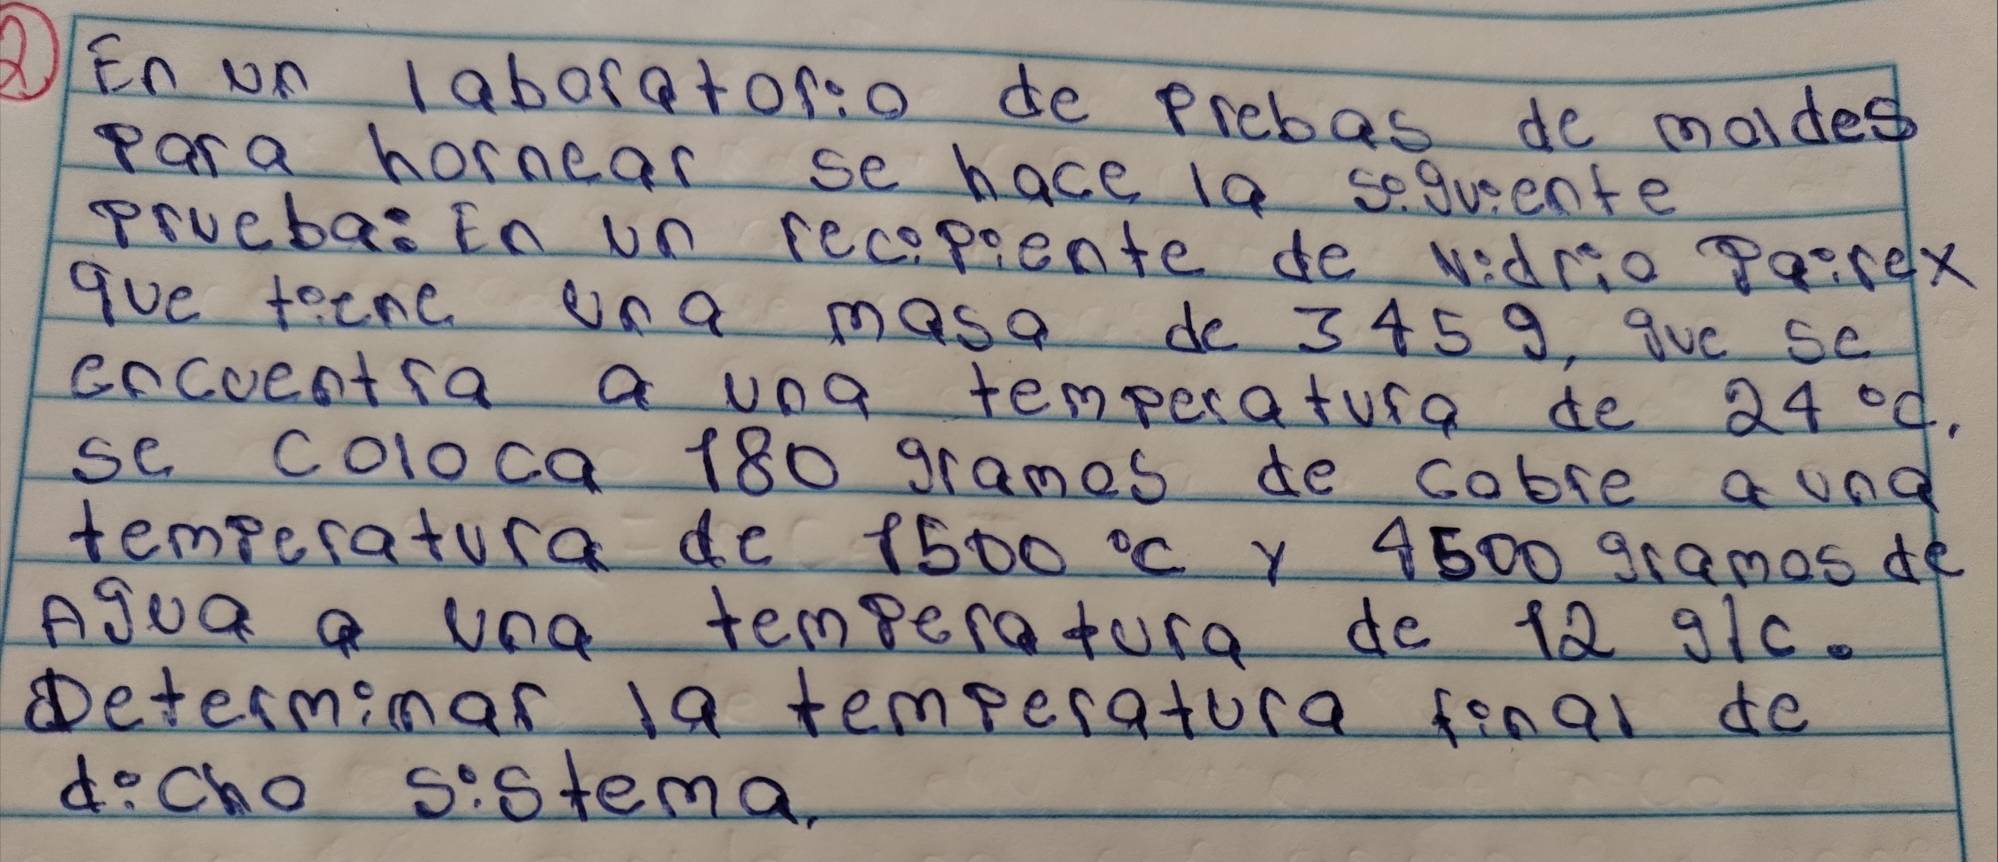 2) En un laboratorio de Prebas de moldes
Para hornear se hace la siguiente
Prueba: En un recipiente de vidrio Pairex
que tiene una masa de 345g, que se
encuentra a una temperatura de 24°C.
se coloca 180 gramos de cobre a una
temperatura de 1500 °C y 4500 gramos de
Agua a una temperatura de 12 g/c.
Determinar la temperatura final de
dicho sistema.